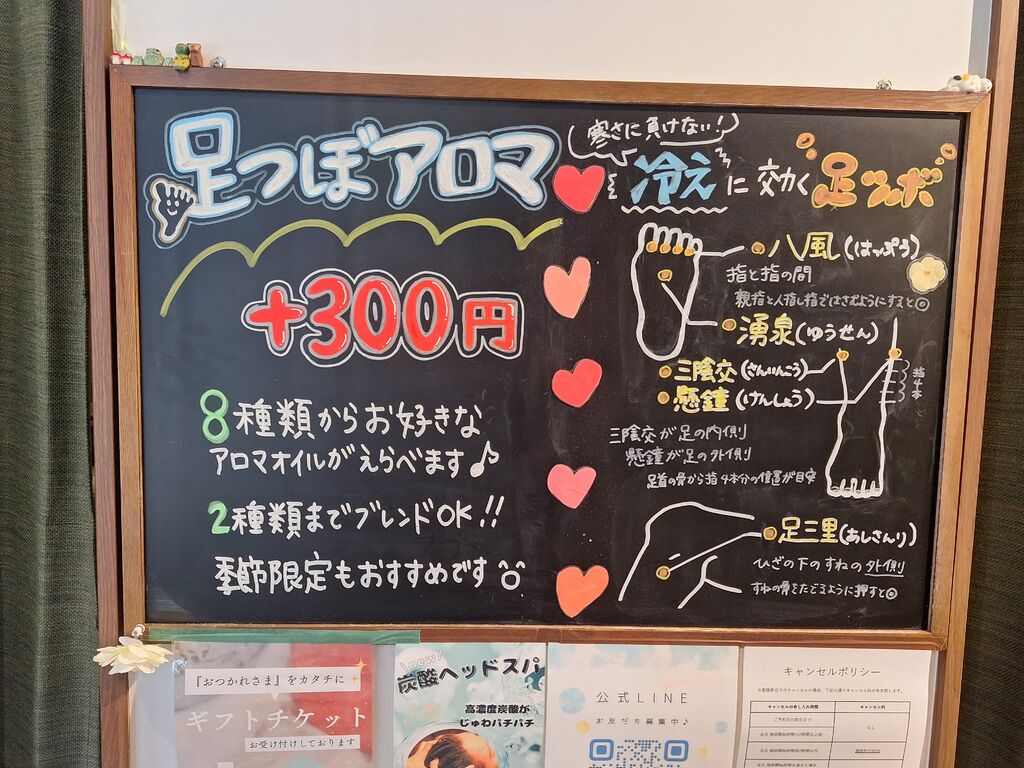 足つぼアロマ
+300円
8種類からお好きな
アロマオイルがえらべます♪
2種類までブレンドOK!!
季節限定もおすすめです
寒さに負けない!
冷えに効く足ツボ
八風(はっぷう)
指と指の間
親指と人指し指ではさむようにすると◎
湧泉(ゆうせん)
三陰交(さんいんこう)
懸鐘(けんしょう)
指4本
三陰交が足の内側
懸鐘が足の外側
足首の骨から指4本分の位置が目安
足三里(あしさんり)
ひざの下のすねの外側
すねの骨をたどるように押すと◎
『おつかれさま』をカタチに
ギフトチケット
お受け付けしております
\new/
炭酸ヘッドスパ
高濃度炭酸が
じゅわパチパチ
公式LINE
お友だち募集中♪
キャンセルポリシー
お客様都合でのキャンセルの場合、下記の通りキャンセル料が発生致します。
キャンセルの申し入れ時間 キャンセル料
ご予約日の前日まで なし
当日 施術開始時間の2時間以上前
当日 施術開始時間前2時間以内